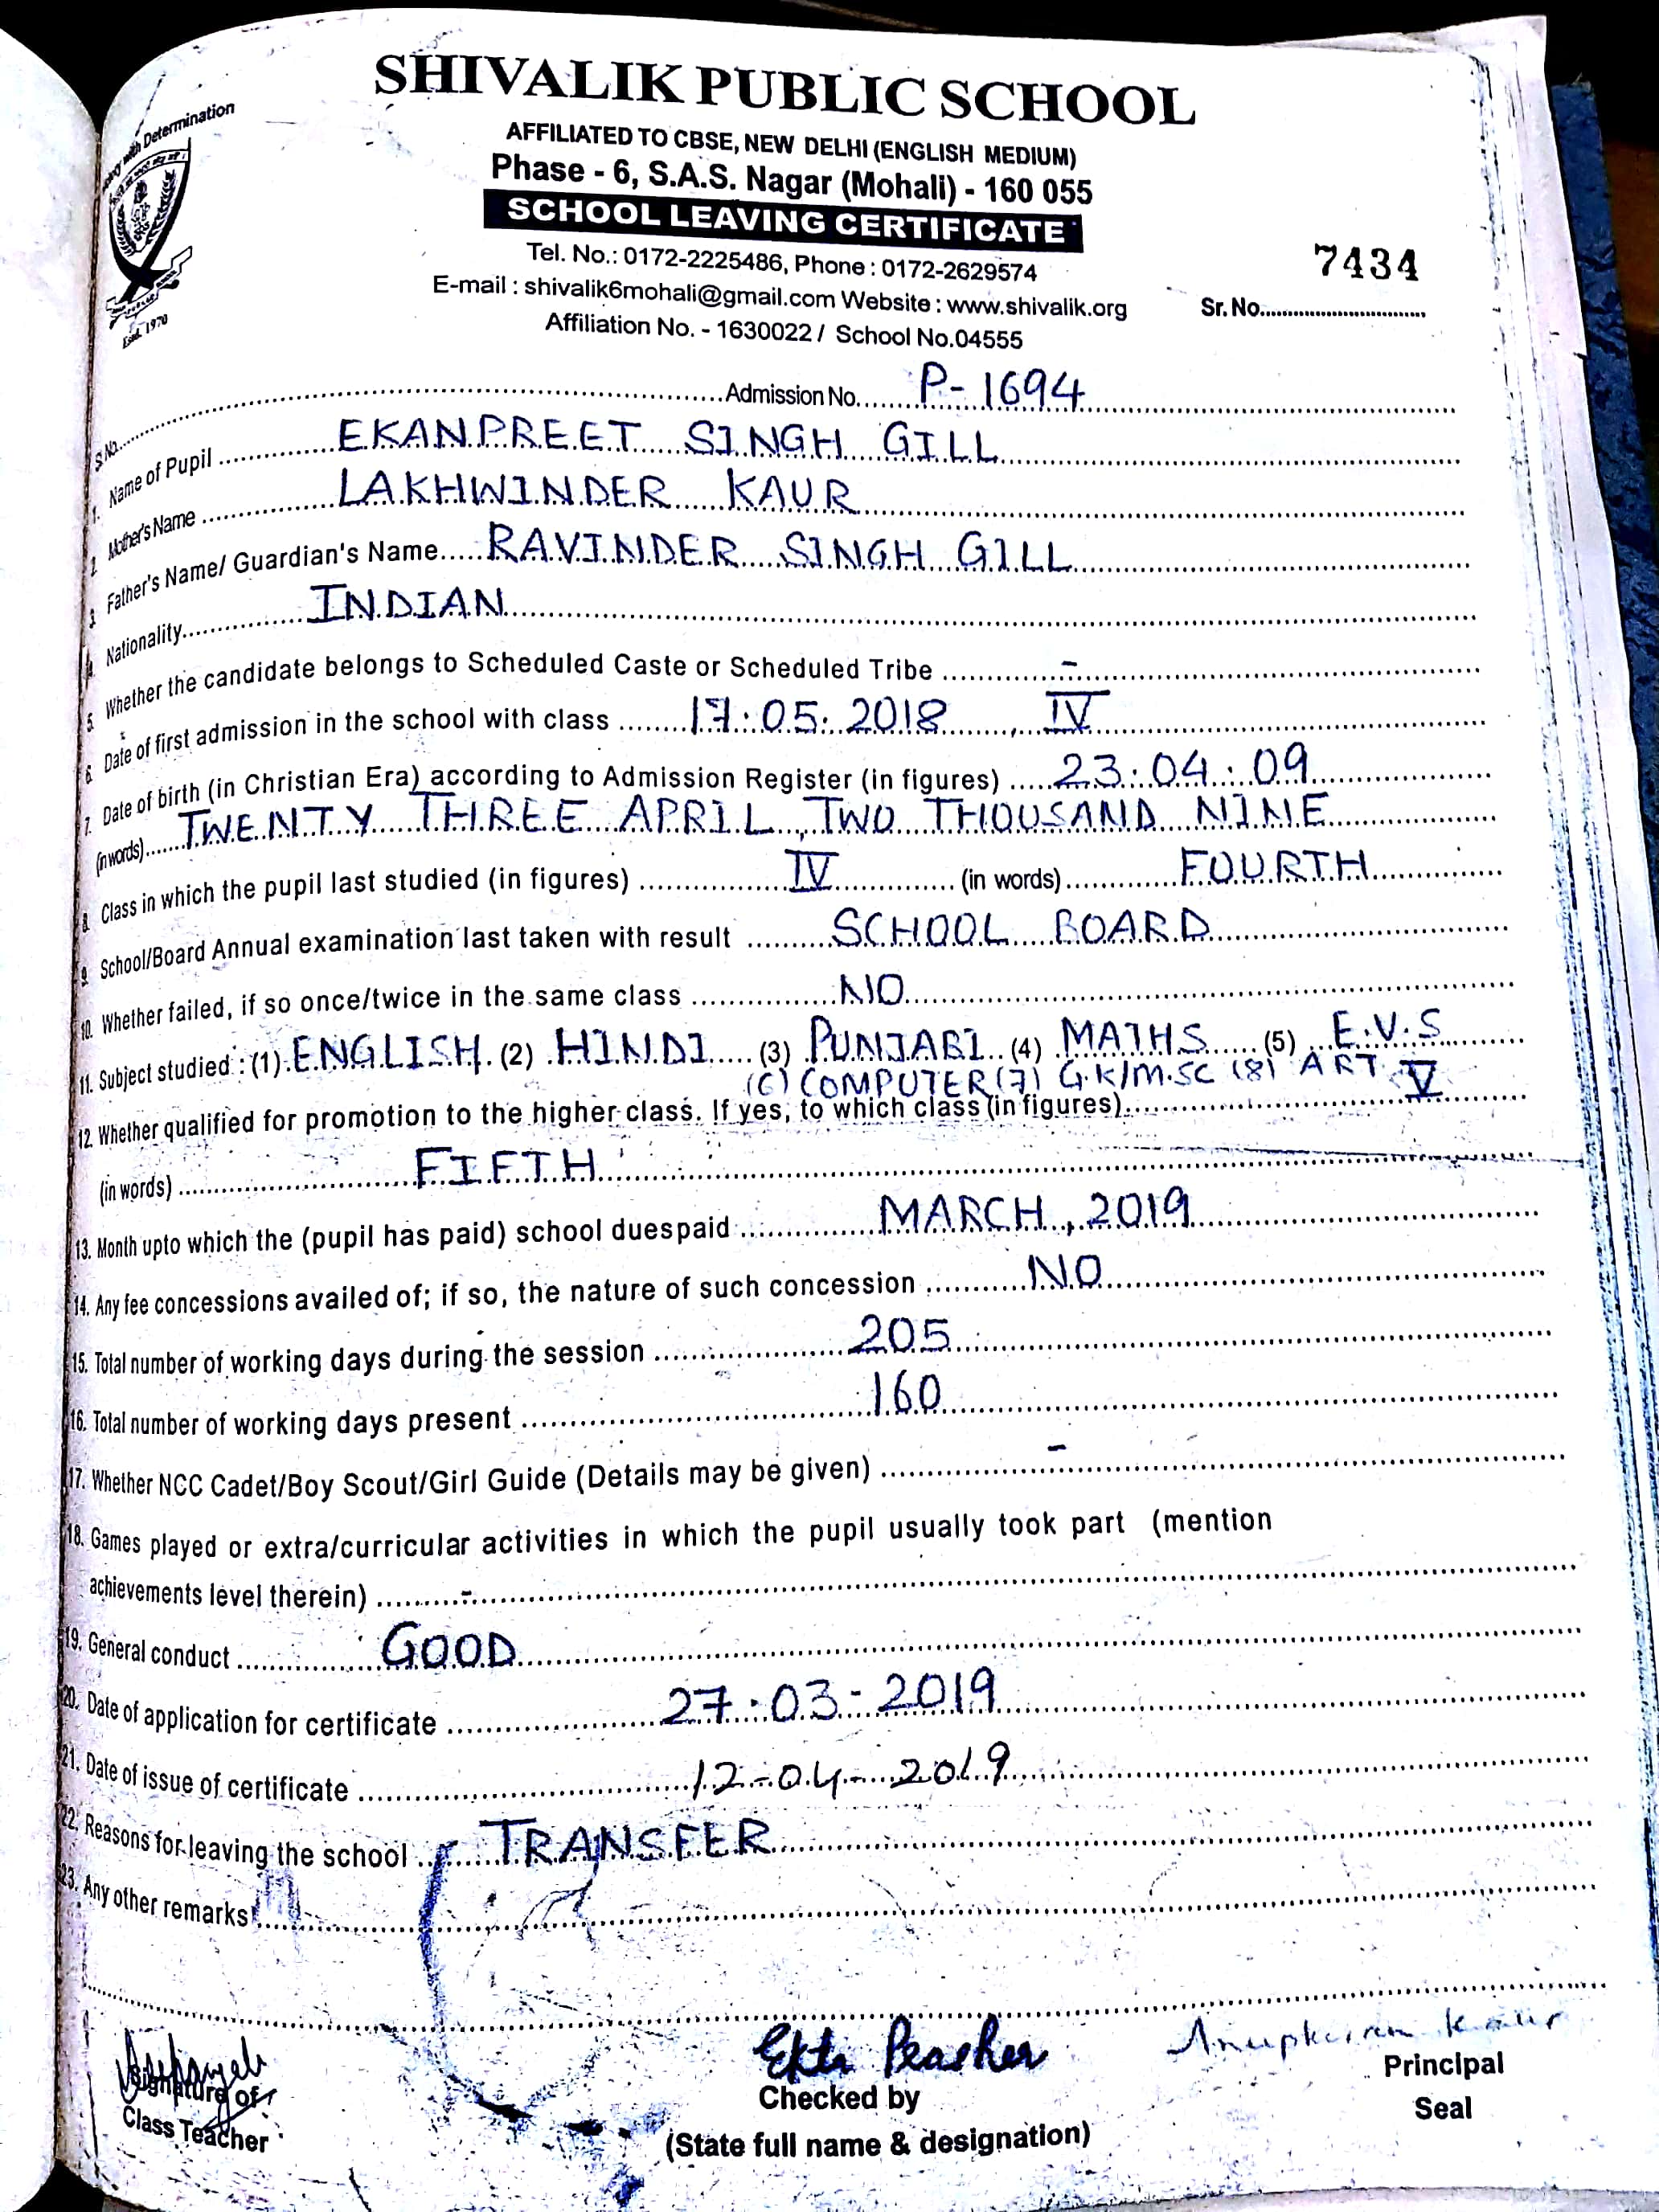 SHIVALIK PUBLIC SCHOOL
AFFILIATED TO CBSE, NEW DELHI (ENGLISH MEDIUM)
Phase - 6, S.A.S. Nagar (Mohali) - 160 055
SCHOOL LEAVING CERTIFICATE
Tel. No.: 0172-2225486, Phone : 0172-2629574
E-mail : shivalik6mohali@gmail.com Website : www.shivalik.org
Affiliation No. - 1630022 / School No.04555
with Determination
Estd. 1970
7434
Sr. No.
S.No. Admission No. P-1694
1. Name of Pupil EKANPREET SINGH GILL
2. Mother's Name LAKHWINDER KAUR
3. Father's Name/ Guardian's Name RAVINDER SINGH GILL
4. Nationality INDIAN
5. Whether the candidate belongs to Scheduled Caste or Scheduled Tribe -
6. Date of first admission in the school with class 17.05.2018, IV
7. Date of birth (in Christian Era) according to Admission Register (in figures) 23.04.09
(in words) TWENTY THREE APRIL, TWO THOUSAND NINE
8. Class in which the pupil last studied (in figures) IV (in words) FOURTH
9. School/Board Annual examination last taken with result SCHOOL BOARD
10. Whether failed, if so once/twice in the same class NO
11. Subject studied : (1) ENGLISH (2) HINDI (3) PUNJABI (4) MATHS (5) E.V.S
(6) COMPUTER (7) G.K/M.SC (8) ART
12. Whether qualified for promotion to the higher class. If yes, to which class (in figures) V
(in words) FIFTH
13. Month upto which the (pupil has paid) school duespaid MARCH, 2019
14. Any fee concessions availed of; if so, the nature of such concession NO
15. Total number of working days during the session 205
16. Total number of working days present 160
17. Whether NCC Cadet/Boy Scout/Girl Guide (Details may be given) -
18. Games played or extra/curricular activities in which the pupil usually took part (mention
achievements level therein) -
19. General conduct GOOD
20. Date of application for certificate 27.03.2019
21. Date of issue of certificate 12-04-2019
22. Reasons for leaving the school TRANSFER
23. Any other remarks
Anupkiran Kaur
Signature of
Class Teacher
Checked by
(State full name & designation)
Principal
Seal